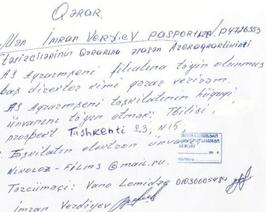 Qərar.
Mən İmran Verdiyev pasport
Təsisçilərinin Qərarına əsasən
AS Aqrarmşeni filialına təyin olunmuş
baş direktor kimi qərar verirəm.
AS Aqrarmşeni təşkilatının hüquqi
ünvanını təyin etmək: Tbilisi,
prospekt Tashkenti 23, N15.
Təşkilatın elektron ünvanı
nikoloz-films@mail.ru.
Tərcüməçi: Vano 01030005484
İmran Verdiyev